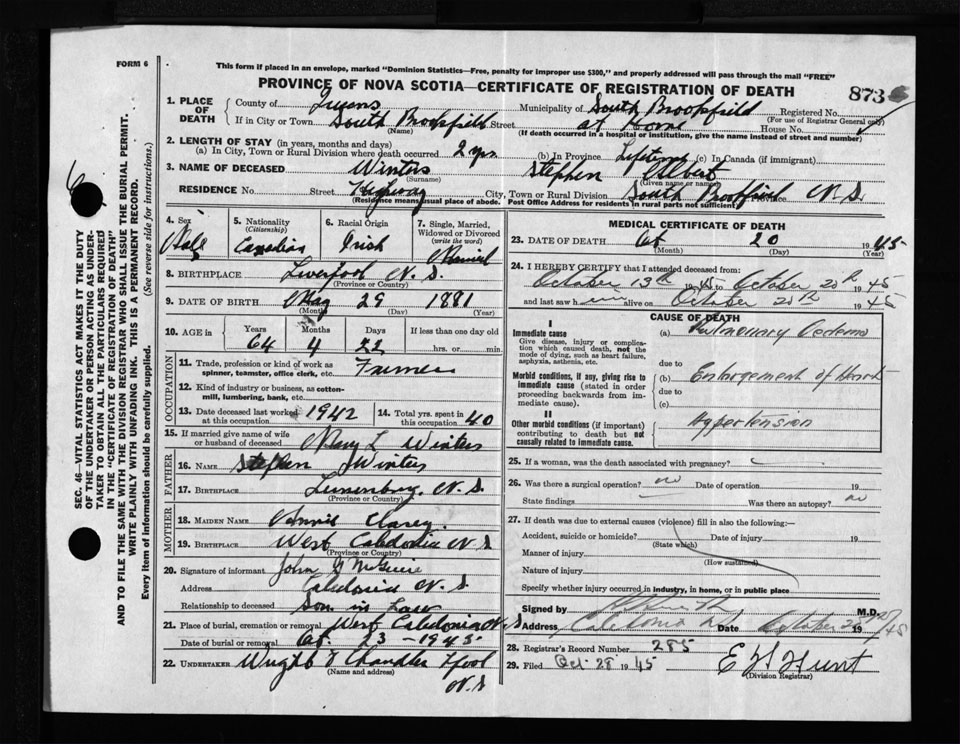 FORM 6
This form if placed in an envelope, marked "Dominion Statistics—Free, penalty for improper use $300," and properly addressed will pass through the mail "FREE"
PROVINCE OF NOVA SCOTIA—CERTIFICATE OF REGISTRATION OF DEATH
873
1. PLACE OF DEATH County of Queens Municipality of South Brookfield Registered No.
(For use of Registrar General only)
If in City or Town South Brookfield Street at Home House No.
(Name) (If death occurred in a hospital or institution, give the name instead of street and number)
2. LENGTH OF STAY (in years, months and days)
(a) In City, Town or Rural Division where death occurred 2 yrs (b) In Province Lifetime (c) In Canada (if immigrant)
3. NAME OF DECEASED Winters Stephen Albert
(Surname) (Given name or names)
RESIDENCE No. Street Highway City, Town or Rural Division South Brookfield Province N.S.
(Residence means usual place of abode. Post Office Address for residents in rural parts not sufficient)
4. Sex Male
5. Nationality (Citizenship) Canadian
6. Racial Origin Irish
7. Single, Married, Widowed or Divorced (write the word) Married
8. BIRTHPLACE Liverpool N.S.
(Province or Country)
9. DATE OF BIRTH May 29 1881
(Month) (Day) (Year)
10. AGE in Years Months Days If less than one day old
64 4 22 hrs. or min.
OCCUPATION
11. Trade, profession or kind of work as spinner, teamster, office clerk, etc. Farmer
12. Kind of industry or business, as cotton-mill, lumbering, bank, etc.
13. Date deceased last worked at this occupation 1942
14. Total yrs. spent in this occupation 40
15. If married give name of wife or husband of deceased Mary L Winters
FATHER
16. NAME Stephen Winters
17. BIRTHPLACE Lunenburg, N.S.
(Province or Country)
MOTHER
18. MAIDEN NAME Annie
19. BIRTHPLACE West Caledonia N S
(Province or Country)
20. Signature of informant John G McGuire
Address Caledonia N.S.
Relationship to deceased Son in Law
21. Place of burial, cremation or removal West Caledonia N S
Date of burial or removal Oct. 23 - 1945
22. UNDERTAKER Wright & Chandler L'pool
(Name and address)
N.S
MEDICAL CERTIFICATE OF DEATH
23. DATE OF DEATH Oct 20 1945
(Month) (Day) (Year)
24. I HEREBY CERTIFY that I attended deceased from:
October 13th 1945 to October 20th 1945
and last saw him alive on October 20th 1945
CAUSE OF DEATH
I
Immediate cause
Give disease, injury or complication which caused death, not the mode of dying, such as heart failure, asphyxia, asthenia, etc.
(a) Pulmonary Oedema
due to
Morbid conditions, if any, giving rise to immediate cause (stated in order proceeding backwards from immediate cause).
(b) Enlargement of Heart
due to
(c)
II
Other morbid conditions (if important) contributing to death but not causally related to immediate cause.
Hypertension
25. If a woman, was the death associated with pregnancy?
26. Was there a surgical operation? no Date of operation 19
State findings Was there an autopsy? no
27. If death was due to external causes (violence) fill in also the following:—
Accident, suicide or homicide? Date of injury 19
(State which)
Manner of injury
(How sustained)
Nature of injury
Specify whether injury occurred in industry, in home, or in public place
Signed by M.D.
Address Caledonia Date October 1945
28. Registrar's Record Number 285
29. Filed Oct. 28 1945 E H Hunt
(Division Registrar)
SEC. 46—VITAL STATISTICS ACT MAKES IT THE DUTY
OF THE UNDERTAKER OR PERSON ACTING AS UNDER-
TAKER TO OBTAIN ALL THE PARTICULARS REQUIRED
IN THE "CERTIFICATE OF REGISTRATION OF DEATH"
AND TO FILE THE SAME WITH THE DIVISION REGISTRAR WHO SHALL ISSUE THE BURIAL PERMIT.
WRITE PLAINLY WITH UNFADING INK. THIS IS A PERMANENT RECORD.
Every item of information should be carefully supplied. (See reverse side for instructions.)